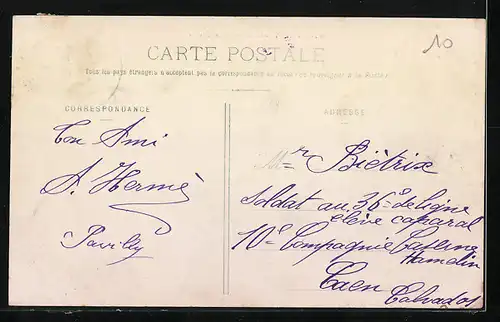 10
CARTE POSTALE
Tous les pays étrangers n'acceptent pas la correspondance au recto
CORRESPONDANCE
ADRESSE
Ton Ami
A. Hermé
Pavilly
Mr Biétrix
Soldat au 36e de Ligne
élève caporal
10e Compagnie Caserne
Hamelin
Caen Calvados